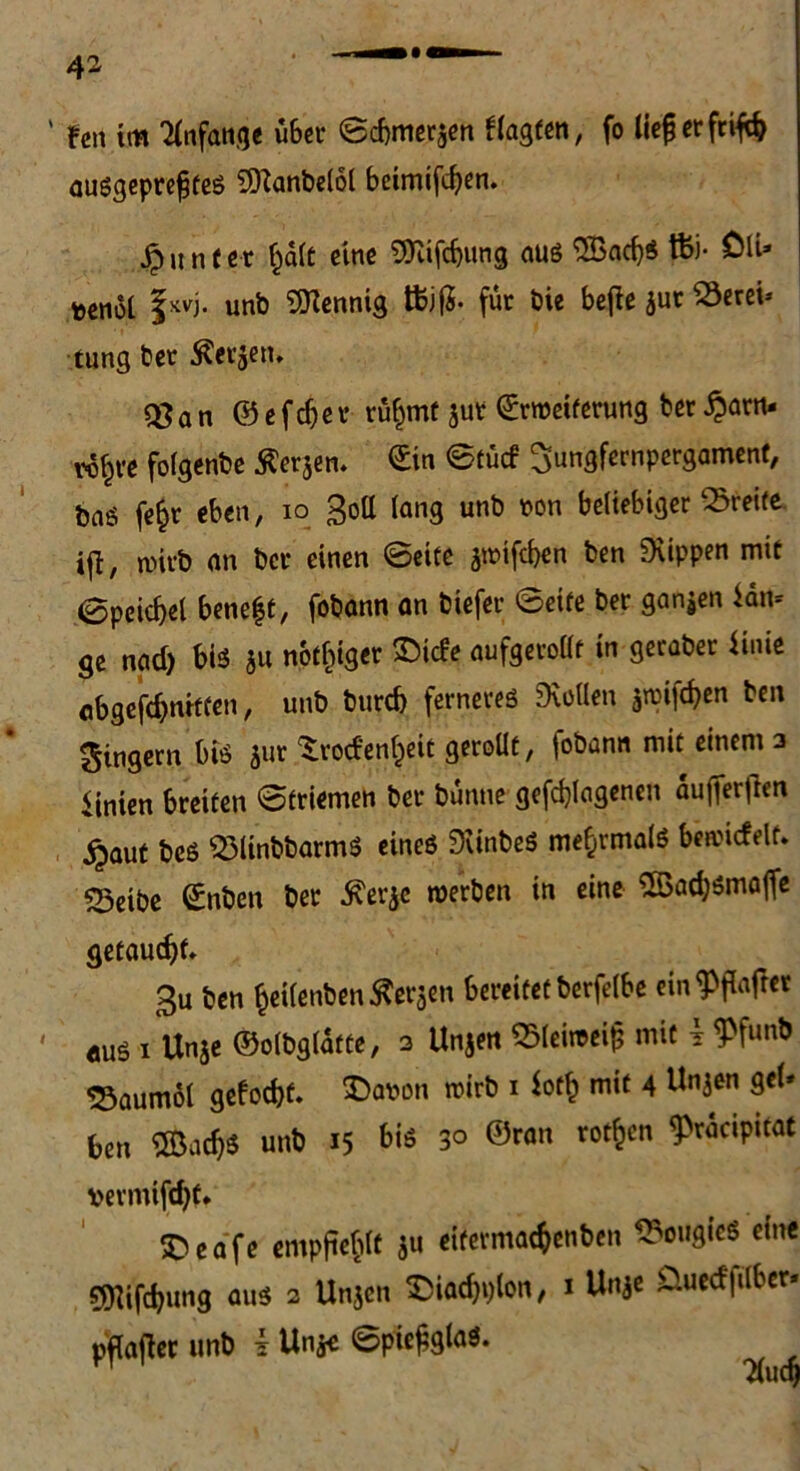 42
ken im Anfange über Schmerzen klagten, so ließ er frisch
ausgepreßtes Mandelöl beimischen.
Hunter hält eine Mischung aus Wachs ℔j. Oli-
venöl ℥xvj. und Mennig ℔jß. für die beste zur Berei-
tung der Kerzen.
Van Gescher rühmt zur Erweiterung der Harn-
röhre folgende Kerzen. Ein Stück Jungfernpergament,
das sehr eben, 10 Zoll lang und von beliebiger Breite
ist, wird an der einen Seite zwischen den Rippen mit
Speichel benetzt, sodann an dieser Seite der ganzen Län-
ge nach bis zu nöthiger Dicke aufgerollt in gerader Linie
abgeschnitten, und durch ferneres Rollen zwischen den
Fingern bis zur Trockenheit gerollt, sodann mit einem 2
Linien breiten Striemen der dünne geschlagenen äussersten
Haut des Blinddarms eines Rindes mehrmals bewickelt.
Beide Enden der Kerze werden in eine Wachsmasse
getaucht.
Zu den heilenden Kerzen bereitet derselbe ein Pflaster
aus 1 Unze Goldglätte, 2 Unzen Bleiweiß mit ½ Pfund
Baumöl gekocht. Davon wird 1 Loth mit 4 Unzen gel-
ben Wachs und 15 bis 30 Gran rothen Präcipitat
vermischt.
Dease empfiehlt zu eitermachenden Bougies eine
Mischung aus 2 Unzen Diachylon, 1 Unze Quecksilber-
pflaster und ½ Unze Spießglas.
Auch